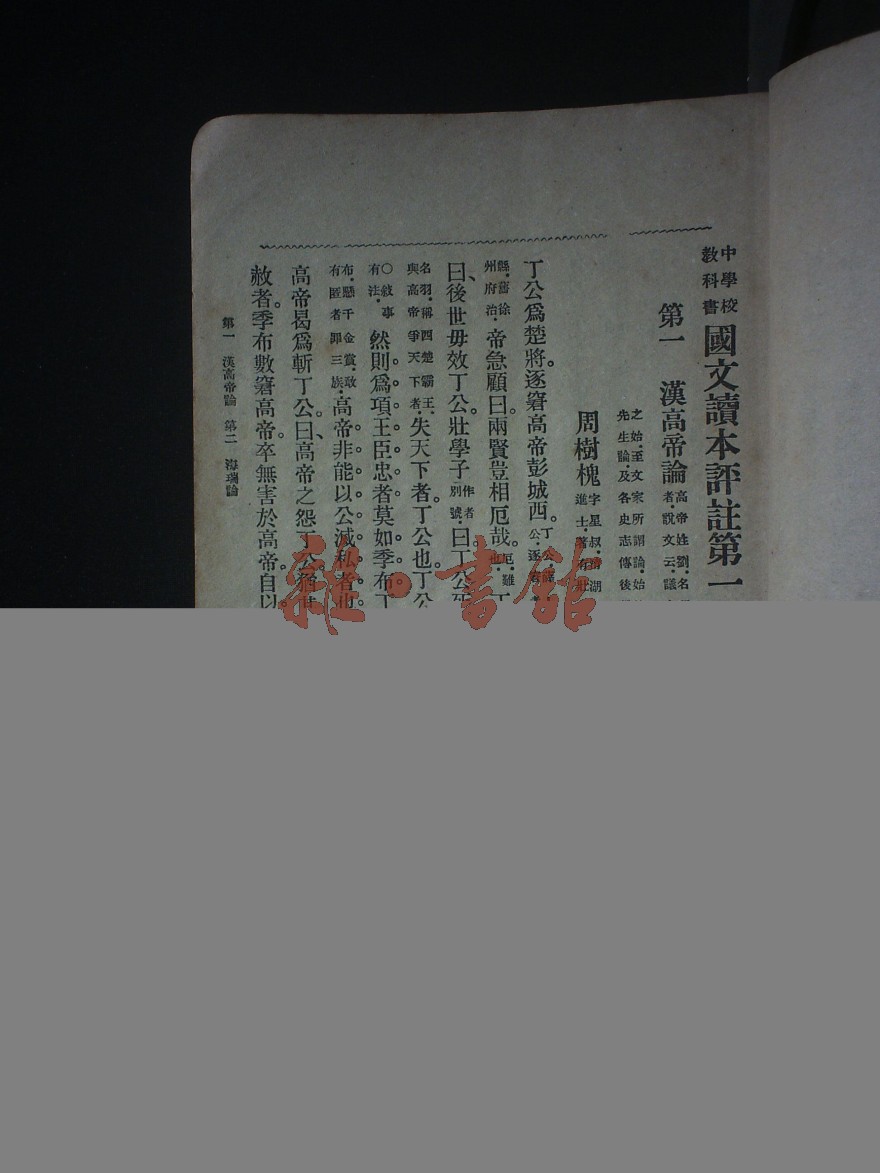 中學校教科書 國文讀本評註第一
第一 漢高帝論 高帝姓劉名
者說文云議
之始至文家所謂論始
先生論及各史志傳後
周樹槐 字星叔 湖
進士著有壯
丁公爲楚將。逐窘高帝彭城西。丁公
公逐
縣舊徐
州府治 帝急顧曰。兩賢豈相厄哉。厄難
也 丁
曰、後世毋效丁公。壯學子 作者
別號 曰。丁公死
名羽稱西楚霸王
與高帝爭天下者 失天下者。丁公也。丁公
○敘事
有法 然則爲項王臣忠者莫如季布。丁
布懸千金賞敢
有匿者罪三族 高帝非能以公滅私者也
高帝曷爲斬丁公。曰、高帝之怨丁公猶
赦者。季布數窘高帝。卒無害於高帝。自以
第一 漢高帝論 第二 海瑞論
雜·書館